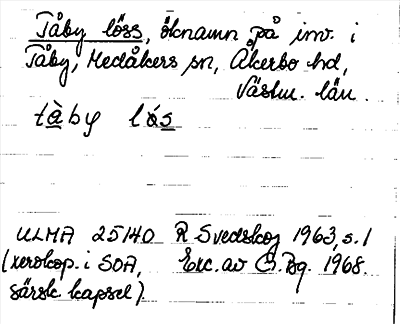 Tåby löss, öknamn på inv. i
Tåby, Medåkers sn, Åkerbo hd,
Västm. län.
tàby lós
ULMA 25140 R Svedskog 1963, s. 1
(xerokop. i SOA, Exc. av Bg. 1968.
särsk. kapsel).